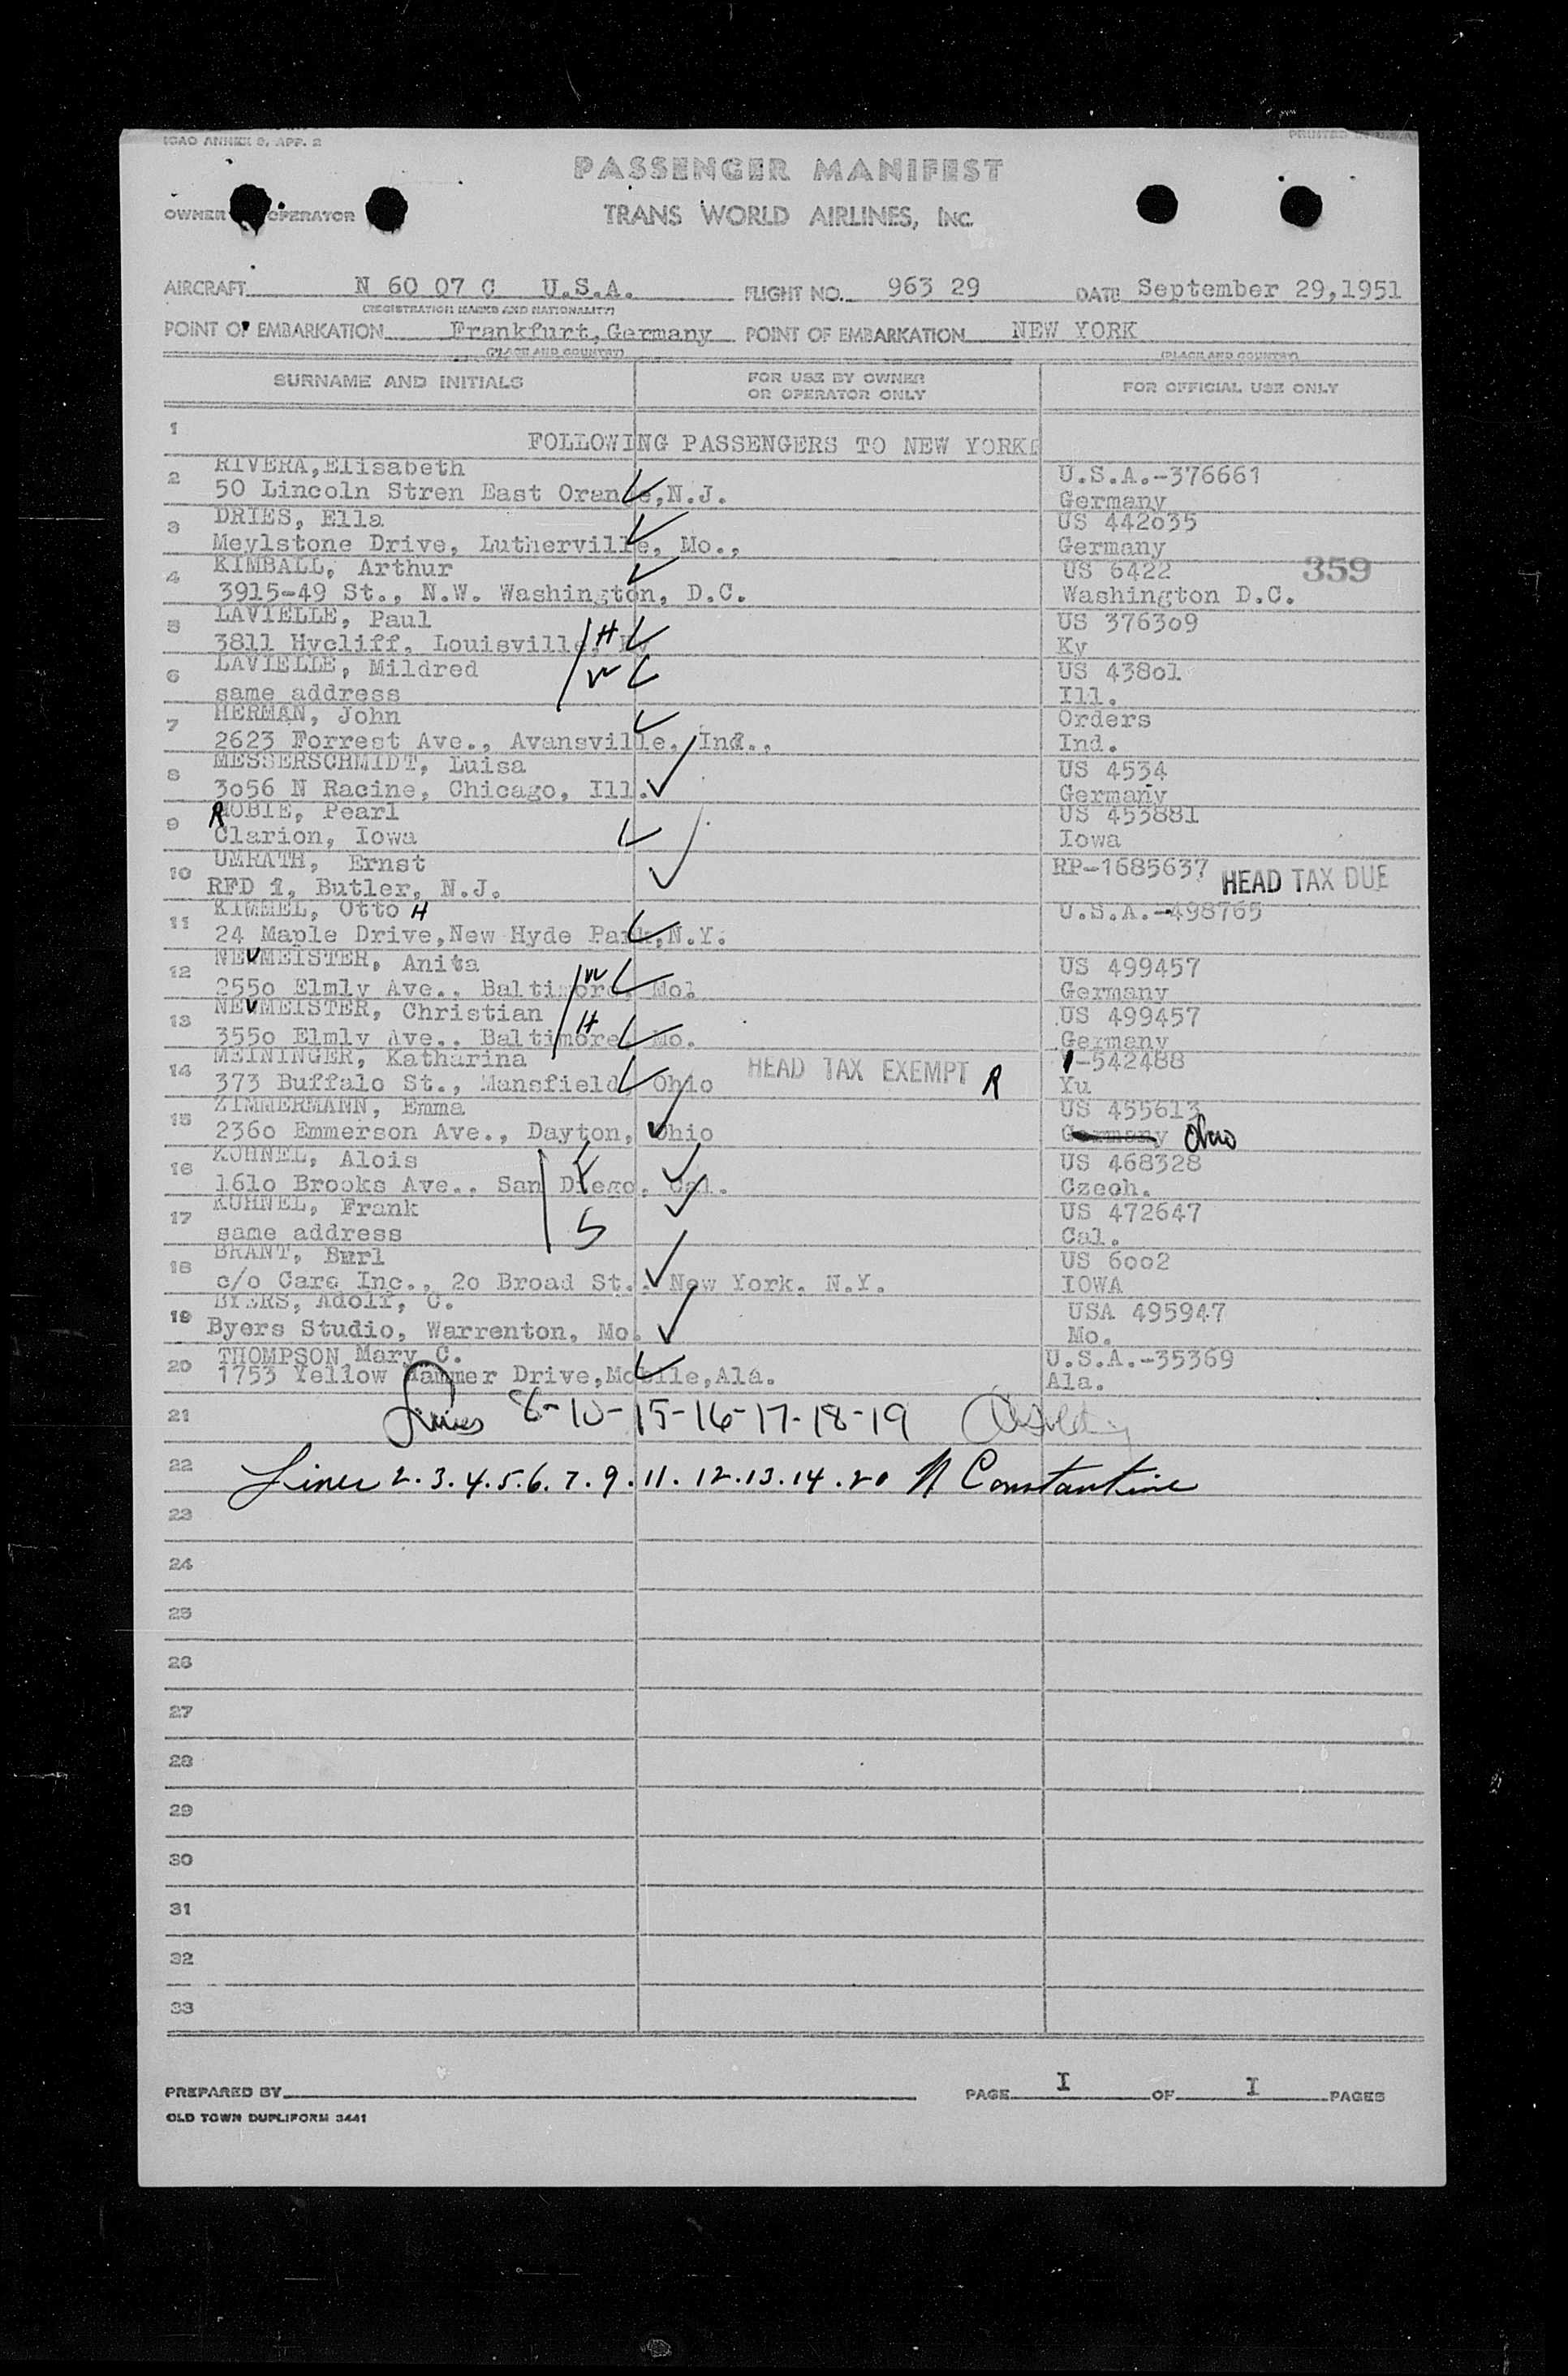 ICAO ANNEX 9, APP. 2
PRINTED IN U.S.A.
PASSENGER MANIFEST
OWNER OPERATOR
TRANS WORLD AIRLINES, INC.
AIRCRAFT N 60 07 C U.S.A. FLIGHT NO. 963 29 DATE September 29,1951
(REGISTRATION MARKS AND NATIONALITY)
POINT OF EMBARKATION Frankfurt,Germany POINT OF EMBARKATION NEW YORK
(PLACE AND COUNTRY) (PLACE AND COUNTRY)
SURNAME AND INITIALS
FOR USE BY OWNER
OR OPERATOR ONLY
FOR OFFICIAL USE ONLY
1 FOLLOWING PASSENGERS TO NEW YORK
2 RIVERA,Elisabeth U.S.A.-376661
50 Lincoln Stren East Orange,N.J. Germany
3 DRIES, Ella US 442o35
Meylstone Drive, Lutherville, Mo., Germany
4 KIMBALL, Arthur US 6422 359
3915-49 St., N.W. Washington, D.C. Washington D.C.
5 LAVIELLE, Paul H US 3763o9
3811 Hycliff, Louisville, Ky Ky
6 LAVIELLE, Mildred W US 438o1
same address Ill.
7 HERMAN, John Orders
2623 Forrest Ave., Avansville, Ind., Ind.
8 MESSERSCHMIDT, Luisa US 4534
3o56 N Racine, Chicago, Ill. Germany
9 ROBIE, Pearl US 453881
Clarion, Iowa Iowa
10 UMRATH, Ernst RP-1685637 HEAD TAX DUE
RFD 1, Butler, N.J.
11 KIMMEL, Otto H U.S.A.-498765
24 Maple Drive,New Hyde Park,N.Y.
12 NEUMEISTER, Anita W US 499457
255o Elmly Ave., Baltimore, Mo. Germany
13 NEUMEISTER, Christian H US 499457
355o Elmly Ave., Baltimore, Mo. Germany
14 MEININGER, Katharina HEAD TAX EXEMPT R -542488
373 Buffalo St., Mansfield, Ohio Yu
15 ZIMMERMANN, Emma US 455613
236o Emmerson Ave., Dayton, Ohio Germany Ohio
16 KUHNEL, Alois F US 468328
161o Brooks Ave., San Diego, Cal. Czech.
17 KUHNEL, Frank S US 472647
same address Cal.
18 BRANT, Burl US 6oo2
c/o Care Inc., 2o Broad St., New York, N.Y. IOWA
19 BYERS, Adolf, C. USA 495947
Byers Studio, Warrenton, Mo. Mo.
20 THOMPSON Mary C. U.S.A.-35369
1753 Yellow Hammer Drive,Mobile,Ala. Ala.
21 Lines 8-10-15-16-17-18-19
22 Lines 2.3.4.5.6.7.9.11.12.13.14.20 N Constantine
23
24
25
26
27
28
29
30
31
32
33
PREPARED BY PAGE I OF I PAGES
OLD TOWN DUPLIFORM 3441